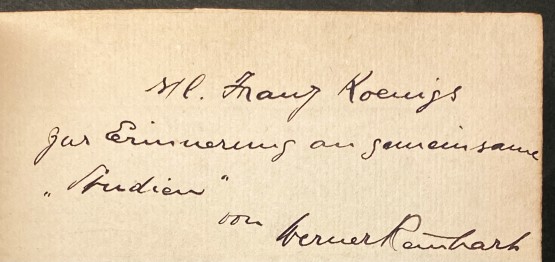 s/l. Franz Koenigs
zur Erinnerung an gemeinsame
„Studien“
von Werner Reinhart